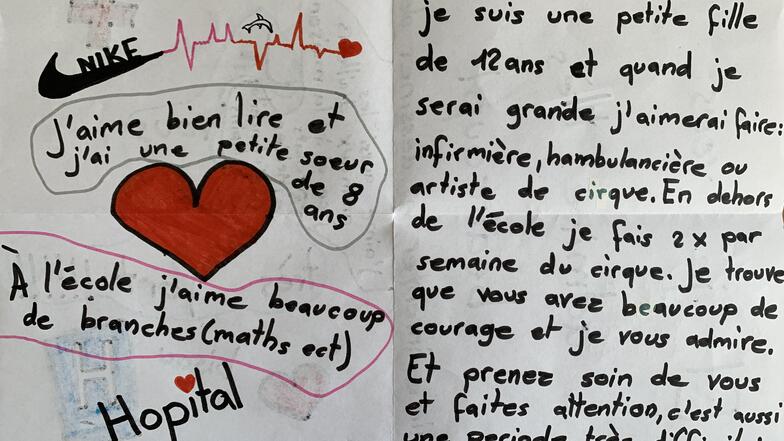 NIKE
j'aime bien lire et
j'ai une petite soeur
de 8
ans
À l'école j'aime beaucoup
de branches (maths ect)
Hopital
je suis une petite fille
de 12 ans et quand je
serai grande j'aimerai faire:
infirmière, hambulancière ou
artiste de cirque. En dehors
de l'école je fais 2x par
semaine du cirque. Je trouve
que vous avez beaucoup de
courage et je vous admire.
Et prenez soin de vous
et faites attention, c'est aussi
une periode très